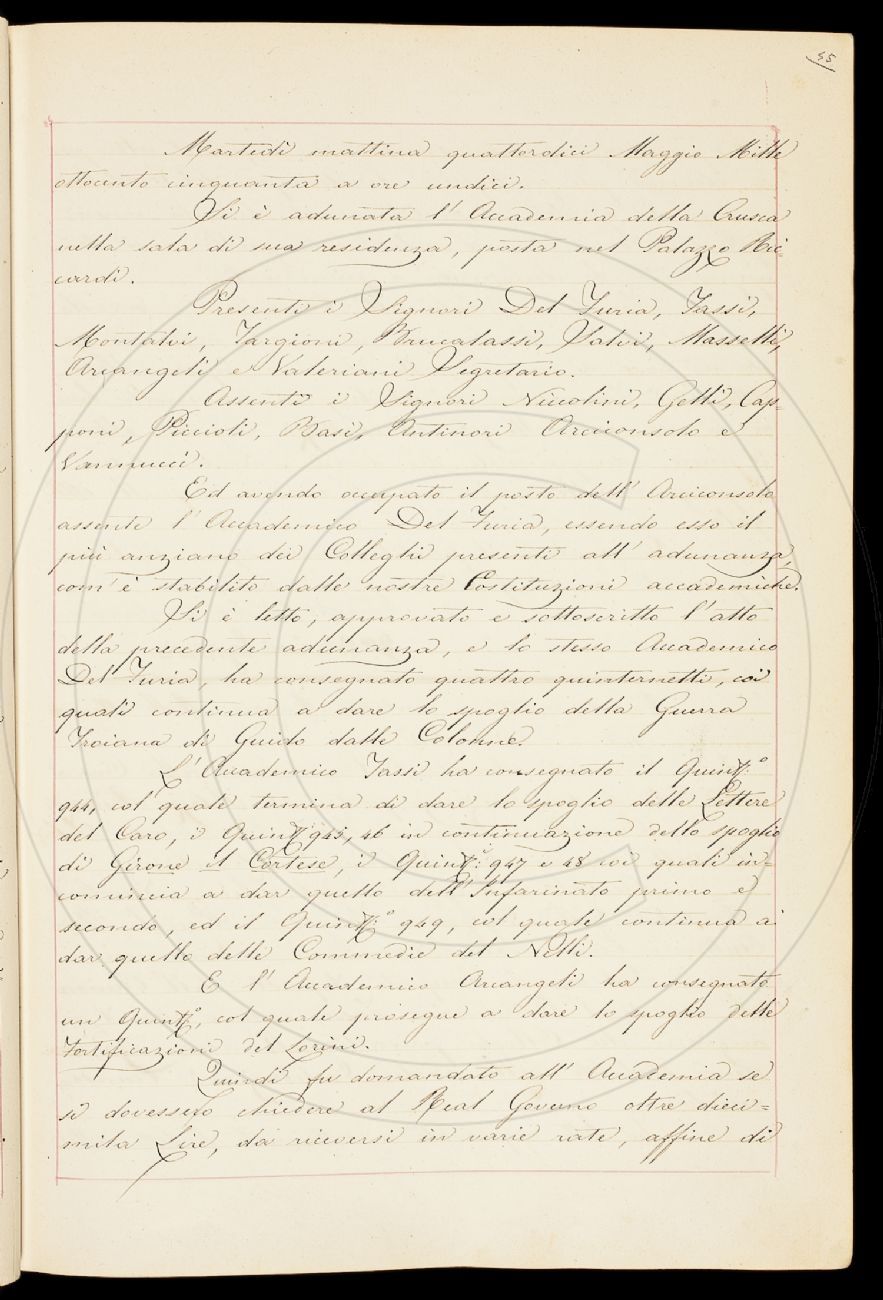 45
Martedì mattina quattordici Maggio Mille
ottocento cinquanta a ore undici.
Si è adunata l'Accademia della Crusca
nella sala di sua residenza, posta nel Palazzo Ric-
cardi.
Presenti i Signori Del Furia, Tassi,
Montalvi, Targioni, Brucalassi, Salvi, Masselli,
Arcangeli e Valeriani Segretario.
Assenti i Signori Niccolini, Gelli, Cap-
poni, Piccioli, Basi, Antinori Arciconsolo e
Vannucci.
Ed avendo occupato il posto dell'Arciconsolo
assente l'Accademico Del Furia, essendo esso il
più anziano dei Colleghi presenti all'adunanza,
com'è stabilito dalle nostre Costituzioni accademiche.
Si è letto, approvato e sottoscritto l'atto
della precedente adunanza, e lo stesso Accademico
Del Furia, ha consegnato quattro quinternetti, coi
quali continua a dare lo spoglio della Guerra
Troiana di Guido dalle Colonne.
L'Accademico Tassi ha consegnato il Quintº
944, col quale termina di dare lo spoglio delle Lettere
del Caro, i Quintⁱ 945, 46 in continuazione dello spoglio
di Girone il Cortese, i Quintⁱ: 947 e 48 coi quali in-
comincia a dar quello dell'Infarinato primo e
secondo, ed il Quint:º 949, col quale continua a
dar quello delle Commedie del Nelli.
E l'Accademico Arcangeli ha consegnato
un Quintº, col quale prosegue a dare lo spoglio delle
Fortificazioni del Lorini.
Quindi fu domandato all'Accademia se
si dovessero chiedere al Real Governo oltre dieci=
mila Lire, da riceversi in varie rate, affine di